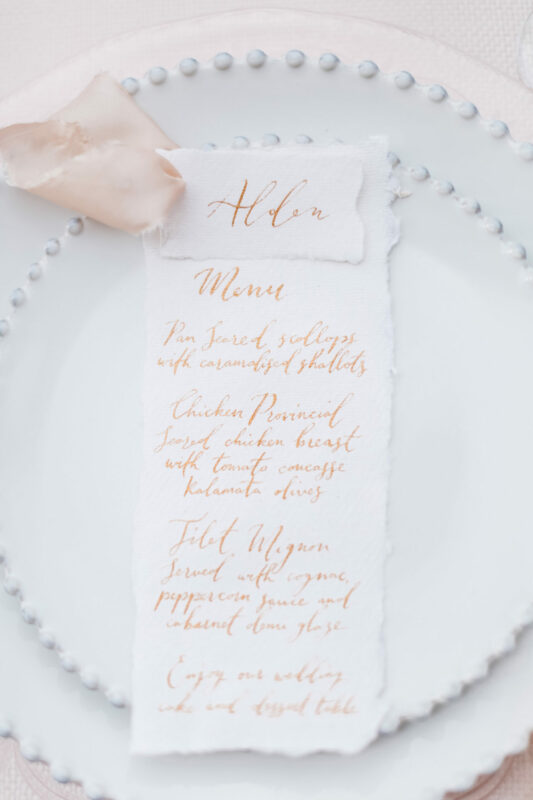 Alden
Menu
Pan Seared scollops
with caramalised shallots
Chicken Provincial
Seared chicken breast
with tomato concasse
Kalamata olives
Filet Mignon
Served with cognac,
peppercorn sauce and
cabernet demi glase
Enjoy our wedding
cake and dessert table